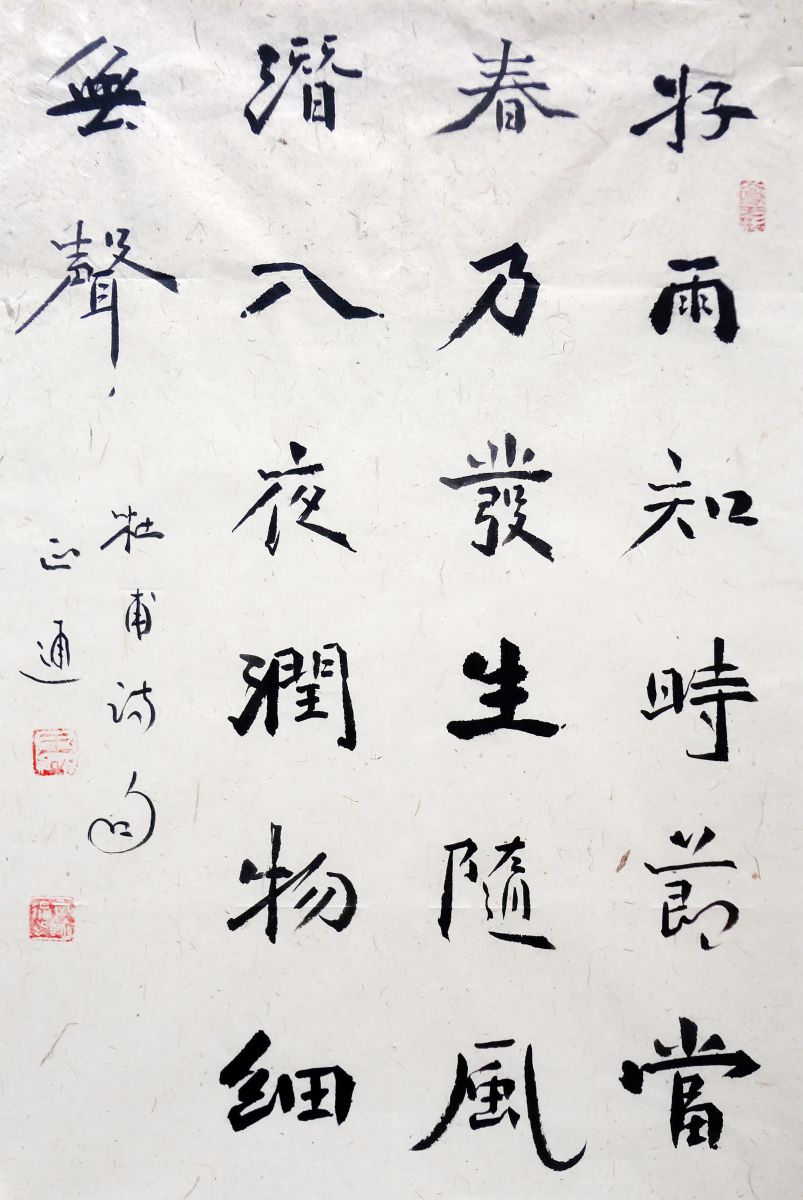 好雨知時節當
春乃發生隨風
潛入夜潤物細
無聲
杜甫诗句
正通